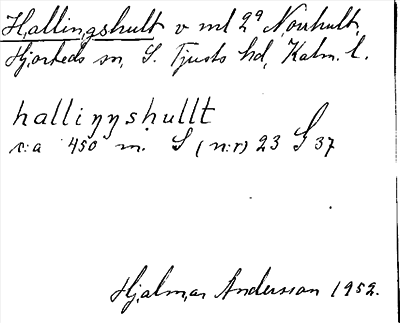 Hallingshult v ml 2ª Norrhult,
Hjorteds sn, S. Tjusts hd, Kalm. l.
halliŋŋshullt
c:a 450 m. S (n:r) 23 G 37
Hjalmar Andersson 1952.